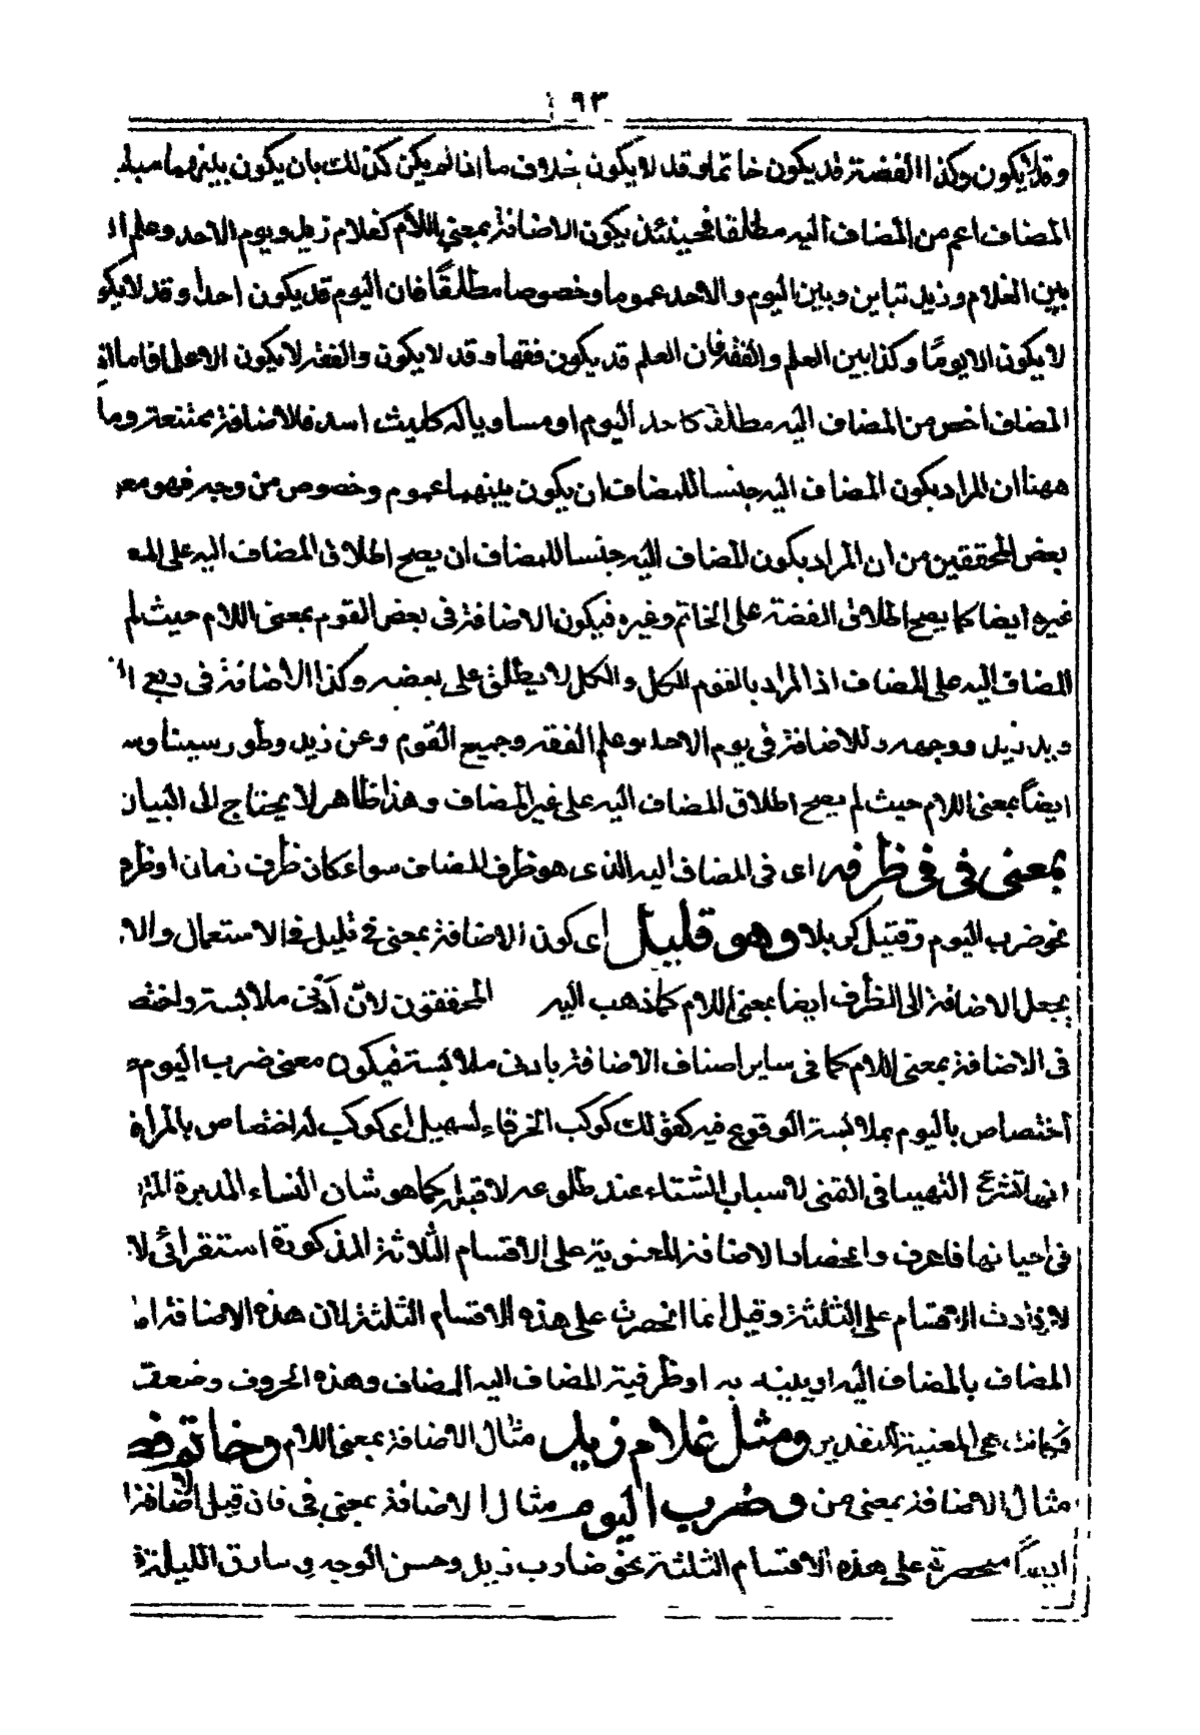 ٩٣
وقد لايكون وكذا الفضة قد يكون خاتما وقد لا يكون بخلاف ما اذا لم يكن كذلك بان يكون بينهما
المضاف اعم من المضاف اليه مطلقا فحينئذ يكون الاضافة بمعنى اللام كغلام زيد ويوم الاحد وعلم
بين الغلام وزيد تباين وبين اليوم والاحد عموما وخصوصا مطلقًا فان اليوم قد يكون احدا وقد لايكو
لا يكون الا يومًا وكذا بين العلم والفقه فان العلم قد يكون فقها وقد لا يكون والفقه لا يكون الا علما فاما
المضاف اخص من المضاف اليه مطلقا كاحد اليوم او مساويا له كليث اسد فالاضافة ممتنعة وما
ههنا ان المراد بكون المضاف اليه جنسا للمضاف ان يكون بينهما عموم وخصوص من وجه فهو
بعض المحققين من ان المراد بكون المضاف اليه جنسا للمضاف ان يصح اطلاق المضاف اليه على
غيره ايضا كما يصح اطلاق الفضة على الخاتم وغيره فيكون الاضافة فى بعض القوم بمعنى اللام حيث لم
المضاف اليه على المضاف اذ المراد بالقوم الكل والكل لا يطلق على بعضه وكذا الاضافة فى
ويد زيد ووجهه وللاضافة فى يوم الاحد وعلم الفقه وجميع القوم وعين زيد وطور سينا
ايضاً بمعنى اللام حيث لم يصح اطلاق المضاف اليه على غير المضاف وهذا ظاهر لا يحتاج الى البيان
بمعنى فى فى ظرفه اى فى المضاف اليه الذى هو ظرف المضاف سواء كان ظرف زمان او
نحو ضرب اليوم وقتيل كربلا وهو قليل اى كون الاضافة بمعنى فى قليل فى الاستعمال
يجعل الاضافة الى الظرف ايضا بمعنى اللام كما ذهب اليه المحققون لان ادنى ملابسة
فى الاضافة بمعنى اللام كما فى ساير اصناف الاضافة بادنى ملابسة فيكون معنى ضرب اليوم
اختصاص باليوم بملابسة الوقوع فيه كقولك كوكب الخرقاء لسهيل اى كوكب له اختصاص بالمراة
انها تشرع التهيا فى القنى لاسباب الشتاء عند طلوعه لا قبله كما هو شان النساء المدبرة
فى احيانها فاعرف وانحصار الاضافة المعنوية على الاقسام الثلاثة المذكورة استقرائى
لازدادت الاقسام على الثلثة وقيل انما انحصرت على هذه الاقسام الثلثة لان هذه الاضافة
المضاف بالمضاف اليه او به او ظرفية المضاف اليه المضاف وهذه الحروف وضعت
فكانت هى المعنية للتقدير ومثل غلام زيد مثال الاضافة بمعنى اللام وخاتم
مثال الاضافة بمعنى من وضرب اليوم مثال الاضافة بمعنى فى فان قيل الاضافة
ايضاً منحصرة على هذه الاقسام الثلثة نحو ضارب زيد وحسن الوجه وسارق الليلة